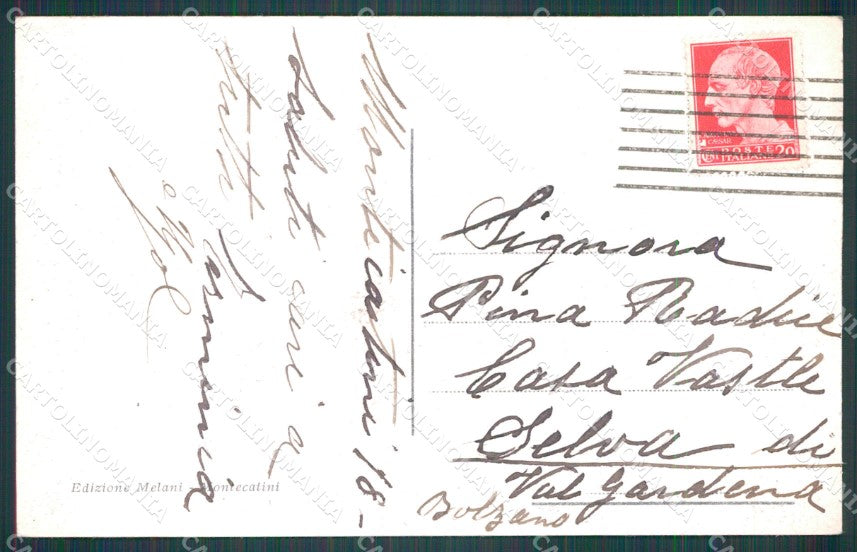 Montecatini 18-
Saluti cari a
tutti
Erminia
e
Edizione Melani - Montecatini
CAESAR
POSTE
ITALIANE 20
Signora
Pina Radice
Casa Vastlè
Selva di
Val Gardena
Bolzano
CARTOLINOMANIA